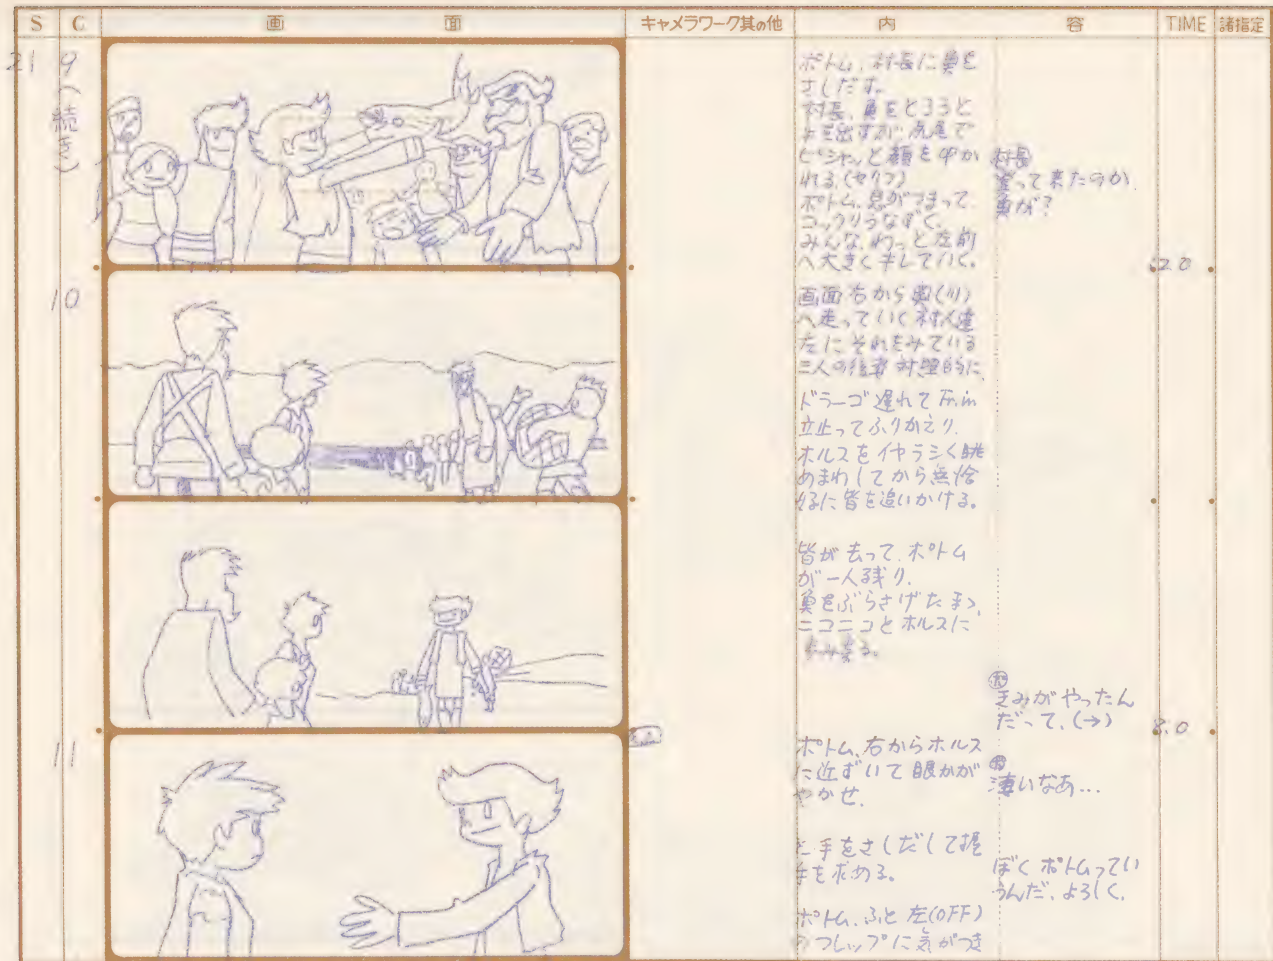 S C 画面 キャメラワーク其の他 内容 TIME 諸指定
21 9(続き)
ポトム、村長に魚を
さしだす。
村長、魚をと33と
手を出すが尾で
ピシャッと顔を叩か
れる。(セリフ)
ポトム、息がつまって
コックリうなずく。
みんな、わっと左前
へ大きくキしていく。
村長
登って来たのか
魚が?
10
画面右から奥(川)
へ走っていく村人達
左にそれをみている
三人の後 対照的に
ドラーゴ遅れて Fr.in
立止ってふりかえり、
ホルスをイヤラシく眺
めまわしてから
に皆を追いかける。
皆が去って、ポトム
が一人残り、
魚をぶらさげたまゝ、
ニコニコとホルスに
歩み
きみがやったん
だって、(→)
8.0
11
ポトム、右からホルス
に近ずいて眼かが
やかせ、
凄いなあ…
手をさしだして握
手を求める。
ぼくポトムってい
うんだ、よろしく、
ポトム、ふと左(OFF)
のフレップに気がつき